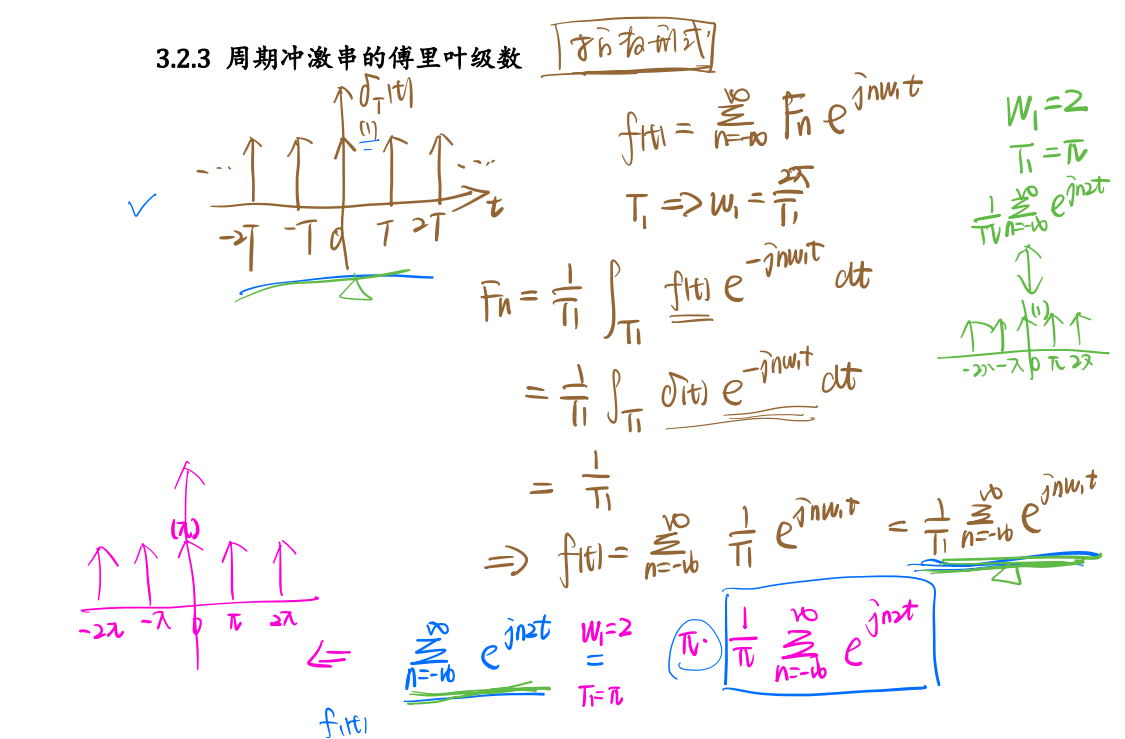 3.2.3 周期冲激串的傅里叶级数
指数形式
δ_T(t)
(1)
... ...
-2T -T 0 T 2T t
f(t) = ∑_{n=-∞}^{∞} Fn e^{jnw₁t}
T₁ => w₁ = 2π/T₁
Fn = 1/T₁ ∫_{T₁} f(t) e^{-jnw₁t} dt
= 1/T₁ ∫_{T₁} δ(t) e^{-jnw₁t} dt
= 1/T₁
=> f(t) = ∑_{n=-∞}^{∞} 1/T₁ e^{jnw₁t} = 1/T₁ ∑_{n=-∞}^{∞} e^{jnw₁t}
W₁=2
T₁=π
1/π ∑_{n=-∞}^{∞} e^{jn2t}
(1)
-2π -π 0 π 2π
(π)
-2π -π 0 π 2π
<= ∑_{n=-∞}^{∞} e^{jn2t} = π· 1/π ∑_{n=-∞}^{∞} e^{jn2t}
W₁=2
T₁=π
f₁(t)